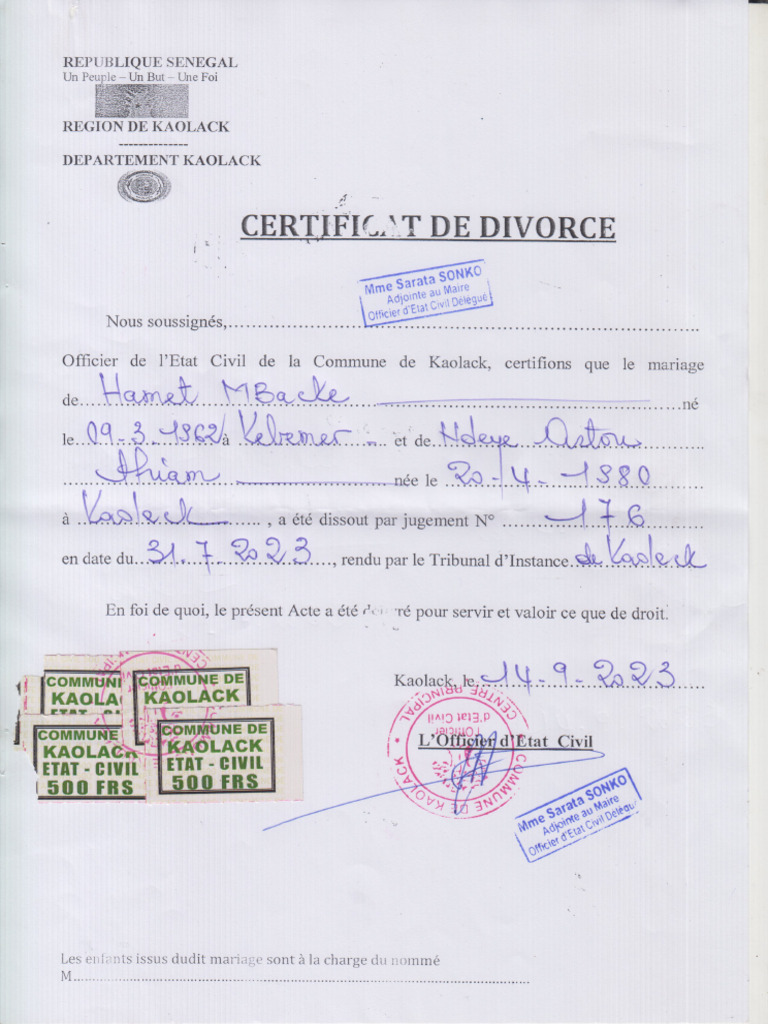 REPUBLIQUE SENEGAL
Un Peuple – Un But – Une Foi
REGION DE KAOLACK
-------------
DEPARTEMENT KAOLACK
CERTIFICAT DE DIVORCE
Mme Sarata SONKO
Adjointe au Maire
Officier d'Etat Civil Délégué
Nous soussignés,
Officier de l'Etat Civil de la Commune de Kaolack, certifions que le mariage
de Hamet MBacke né
le 09-3-1962 à Kebemer et de Ndeye Astou
Thiam née le 20-4-1980
à Kaolack, a été dissout par jugement N° 176
en date du 31.7.2023, rendu par le Tribunal d'Instance de Kaolack
En foi de quoi, le présent Acte a été délivré pour servir et valoir ce que de droit.
Kaolack, le 14-9-2023
COMMUNE DE
KAOLACK
COMMUNE
KAOLACK
ETAT - CIVIL
500 FRS
COMMUNE DE
KAOLACK
ETAT - CIVIL
500 FRS
L'Officier d'Etat Civil
COMMUNE DE KAOLACK
CENTRE PRINCIPAL
L'Officier
d'Etat Civil
Mme Sarata SONKO
Adjointe au Maire
Officier d'Etat Civil Délégué
Les enfants issus dudit mariage sont à la charge du nommé
M